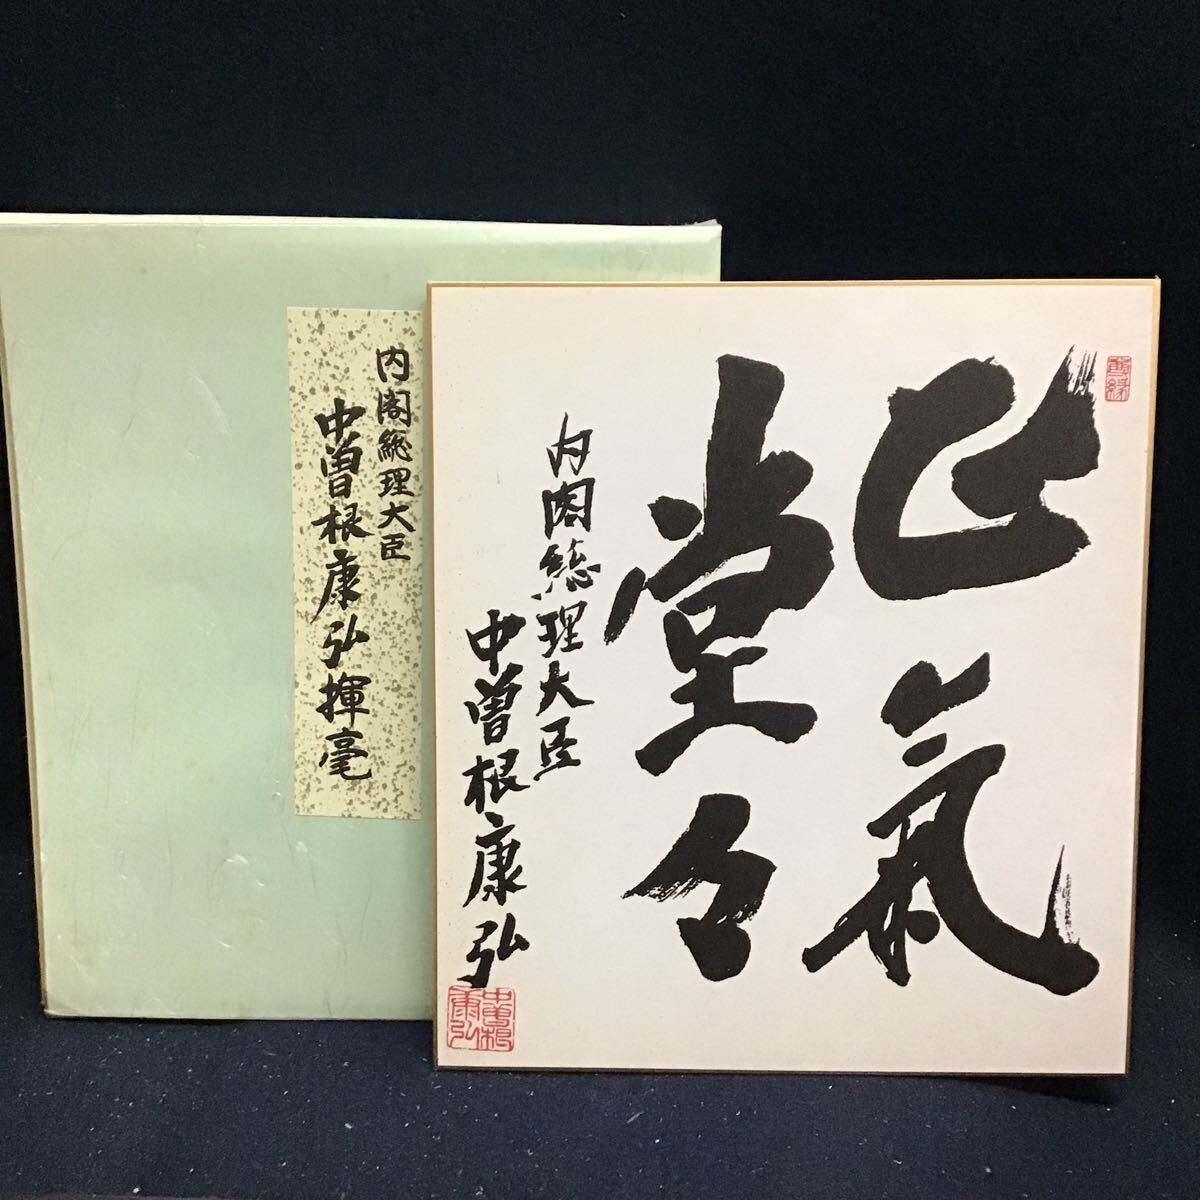 内閣総理大臣
中曽根康弘揮毫
正氣
堂々
内閣総理大臣
中曽根康弘
中曽根
康弘